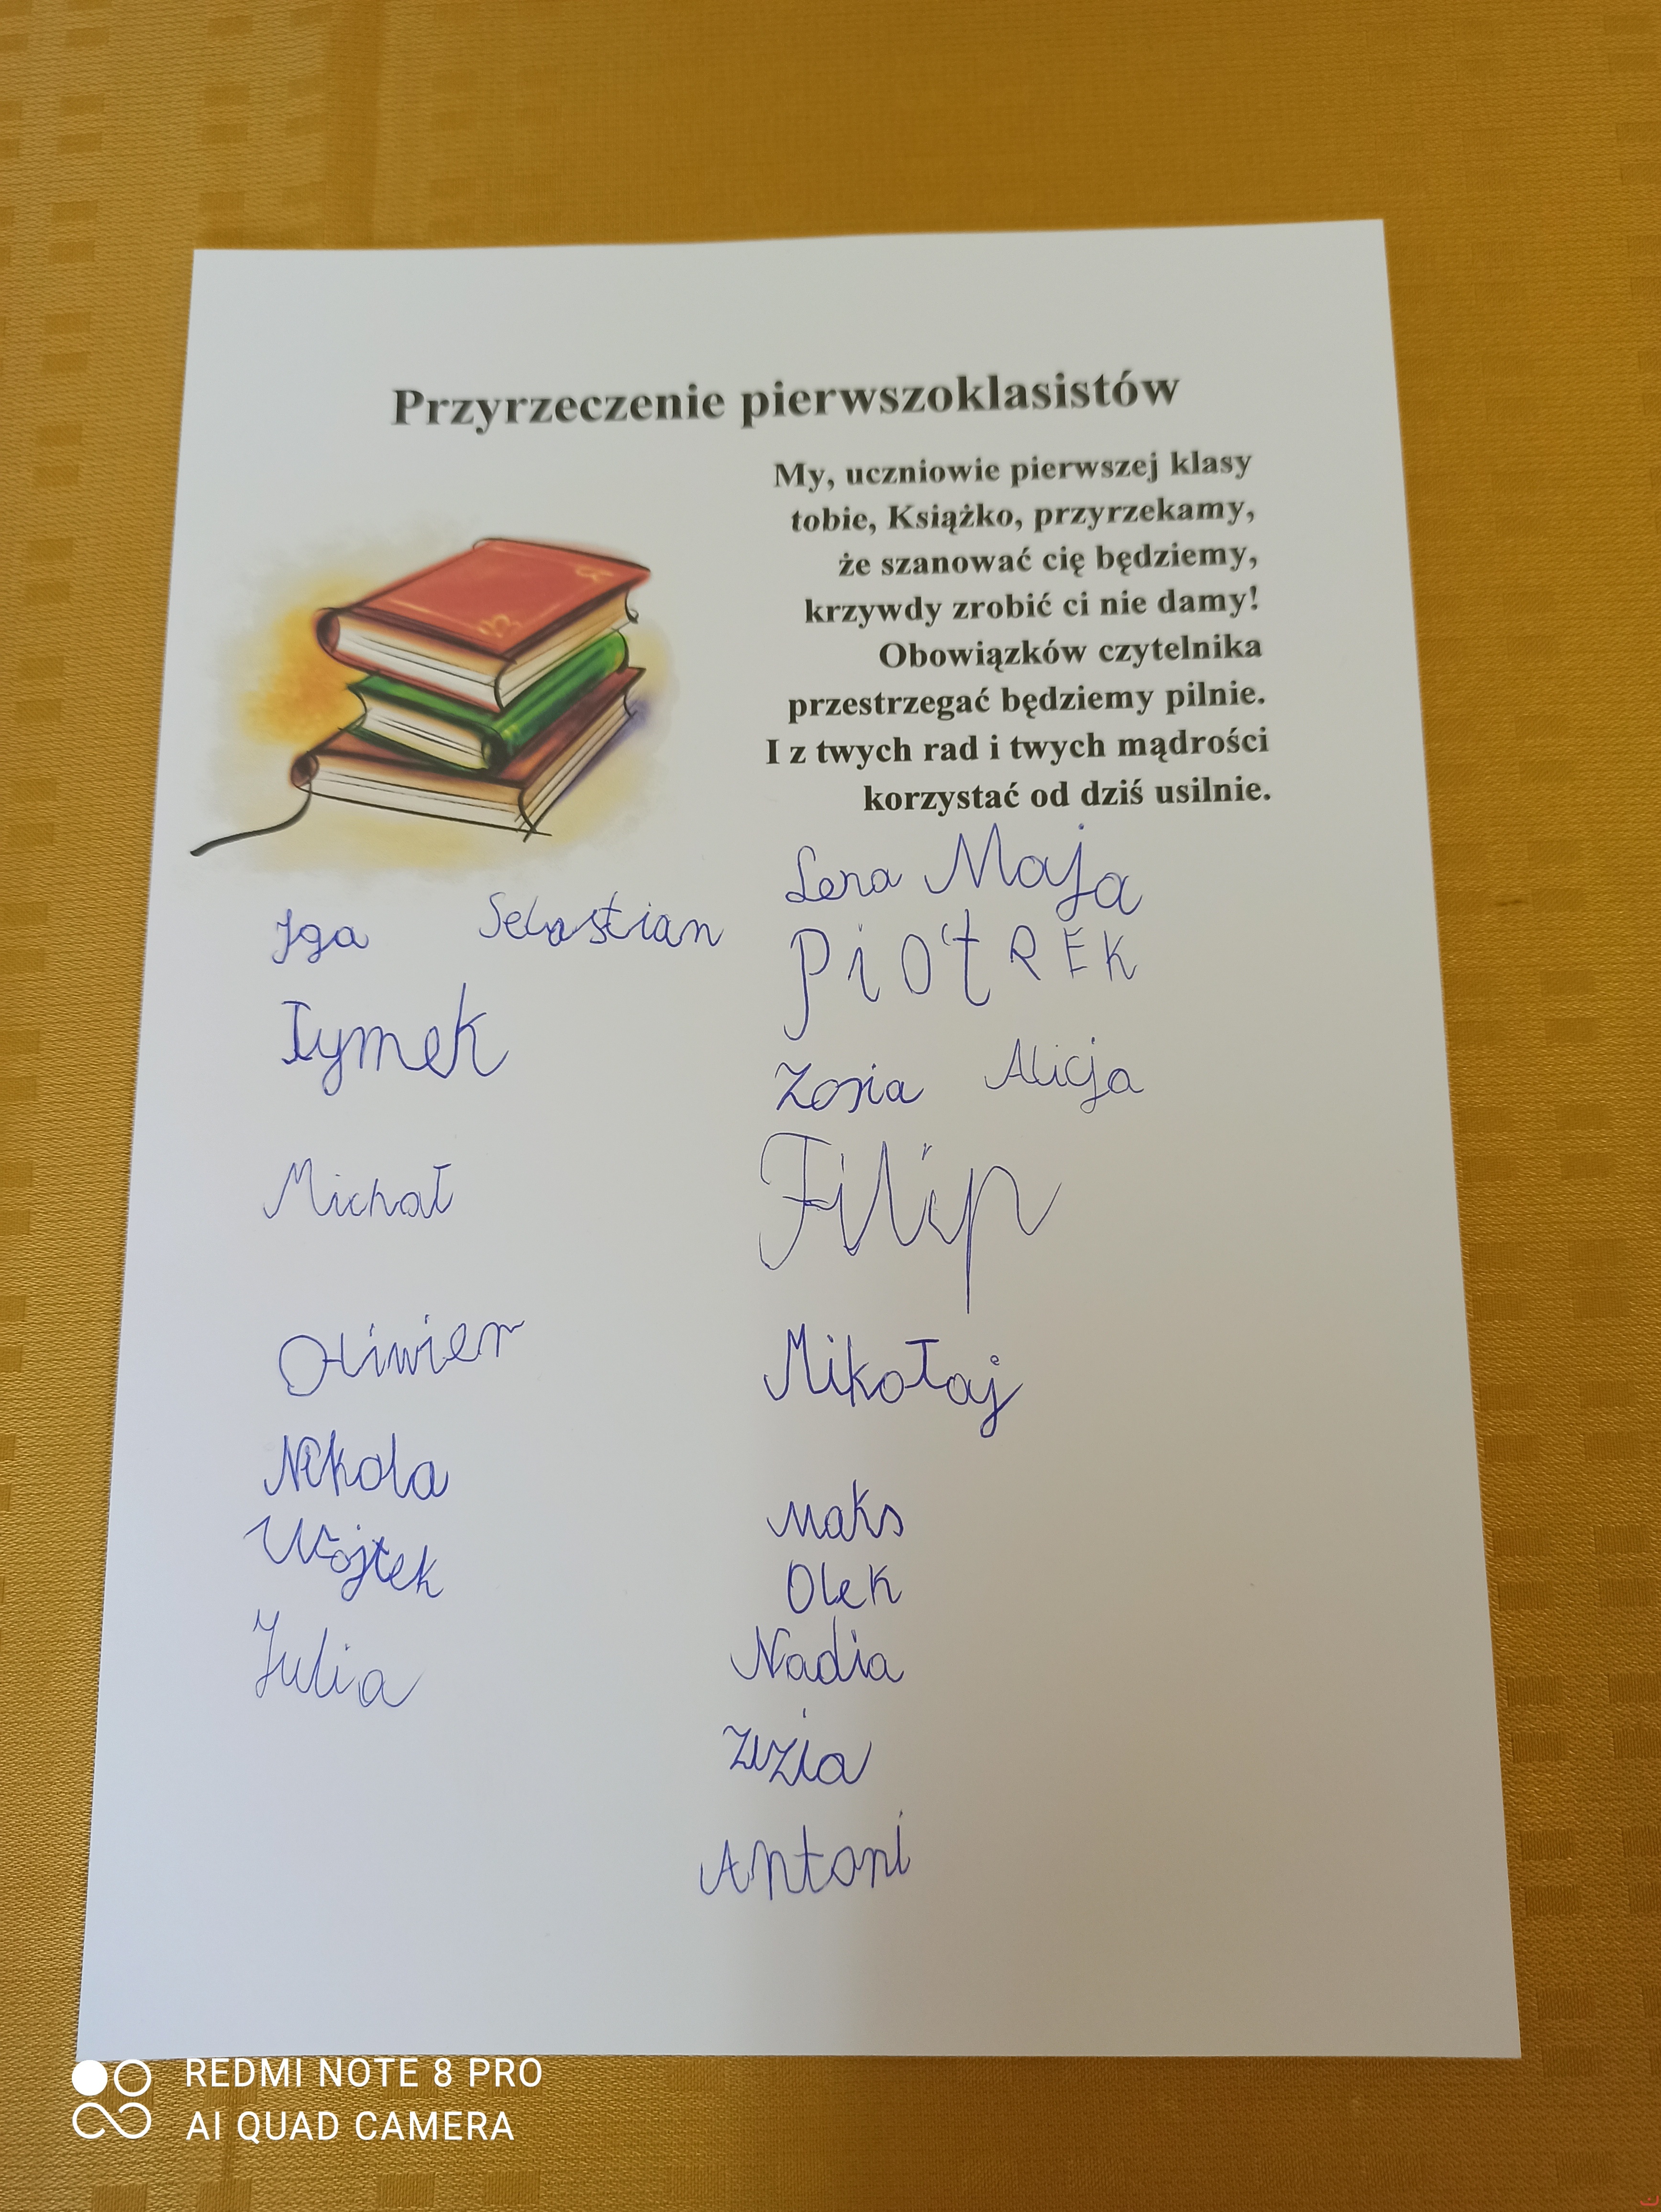 Przyrzeczenie pierwszoklasistów
My, uczniowie pierwszej klasy
tobie, Książko, przyrzekamy,
że szanować cię będziemy,
krzywdy zrobić ci nie damy!
Obowiązków czytelnika
przestrzegać będziemy pilnie.
I z twych rad i twych mądrości
korzystać od dziś usilnie.
Iga Sebastian
Tymek
Michał
Oliwier
Nikola
Wojtek
Julia
Lena Maja
PiotREK
Zosia Alicja
Filip
Mikołaj
Maks
Olek
Nadia
Zuzia
Antoni
REDMI NOTE 8 PRO
AI QUAD CAMERA